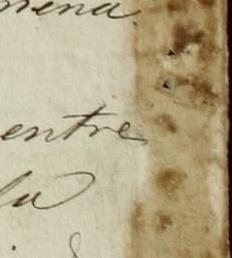 mena
entre
la